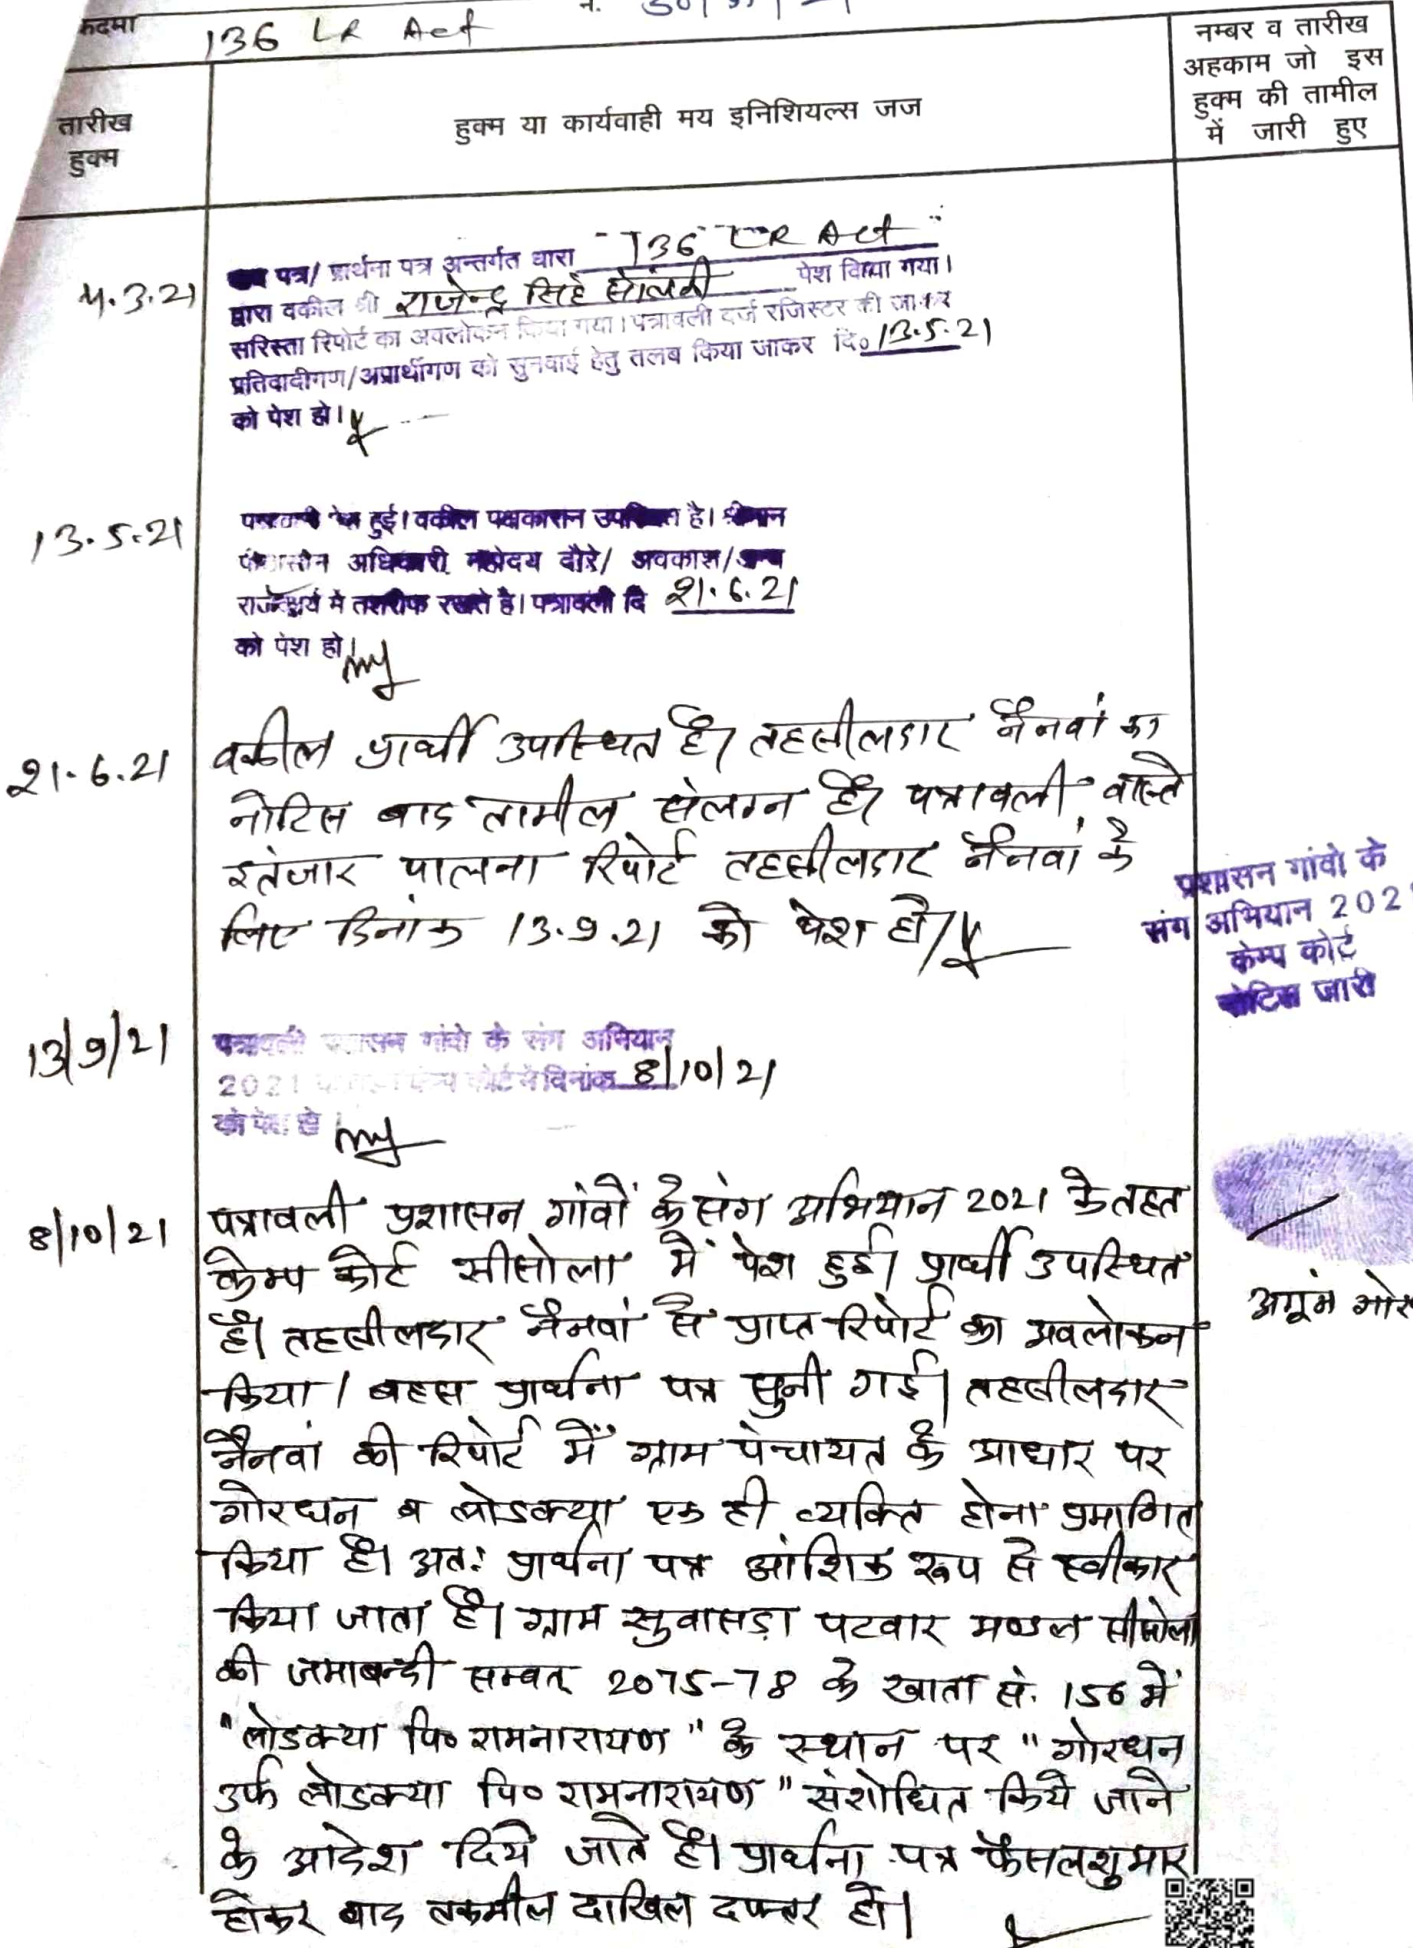 कदमा 136 LR Act
तारीख
हुक्म
हुक्म या कार्यवाही मय इनिशियल्स जज
नम्बर व तारीख
अहकाम जो इस
हुक्म की तामील
में जारी हुए
4.3.21
पत्र/ प्रार्थना पत्र अन्तर्गत धारा 136 LR Act
द्वारा वकील श्री राजेन्द्र सिंह सोलंकी पेश किया गया।
सरिस्ता रिपोर्ट का अवलोकन किया गया। पत्रावली दर्ज रजिस्टर की जाकर
प्रतिवादीगण/अप्रार्थीगण को सुनवाई हेतु तलब किया जाकर दि० 13.5.21
को पेश हो।
13.5.21
पत्रावली पेश हुई। वकील पक्षकारान उपस्थित है। श्रीमान
पीठासीन अधिकारी महोदय दौरे/ अवकाश/अन्य
राजकार्य मे तशरीफ रखते है। पत्रावली दि 21.6.21
को पेश हो।
21.6.21
वकील प्रार्थी उपस्थित है। तहसीलदार नैनवां का
नोटिस बाद तामील संलग्न है। पत्रावली वास्ते
इंतजार पालना रिपोर्ट तहसीलदार नैनवां के
लिए दिनांक 13.9.21 को पेश हो।
प्रशासन गांवो के
संग अभियान 202
केम्प कोर्ट
नोटिस जारी
13/9/21
पत्रावली प्रशासन गांवो के संग अभियान
2021 कोर्ट मे दिनांक 8/10/21
को पेश हो
8/10/21
पत्रावली प्रशासन गांवों के संग अभियान 2021 के तहत
केम्प कोर्ट सीसोला में पेश हुई। प्रार्थी उपस्थित
है। तहसीलदार नैनवां से प्राप्त रिपोर्ट का अवलोकन
किया। बहस प्रार्थना पत्र सुनी गई। तहसीलदार
नैनवां की रिपोर्ट में ग्राम पंचायत के आधार पर
गोरधन व लोडक्या एक ही व्यक्ति होना प्रमाणित
किया है। अतः प्रार्थना पत्र आंशिक रूप से स्वीकार
किया जाता है। ग्राम सुवासड़ा पटवार मण्डल सीसोला
की जमाबन्दी सम्वत् 2075-78 के खाता सं. 156 में
"लोडक्या पि० रामनारायण" के स्थान पर "गोरधन
उर्फ लोडक्या पि० रामनारायण" संशोधित किये जाने
के आदेश दिये जाते है। प्रार्थना पत्र फैसलशुमार
होकर बाद तकमील दाखिल दफ्तर हो।